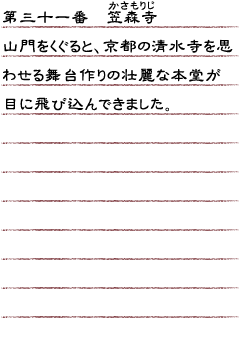 かさもりじ
第三十一番　笠森寺
山門をくぐると、京都の清水寺を思
わせる舞台作りの壮麗な本堂が
目に飛び込んできました。